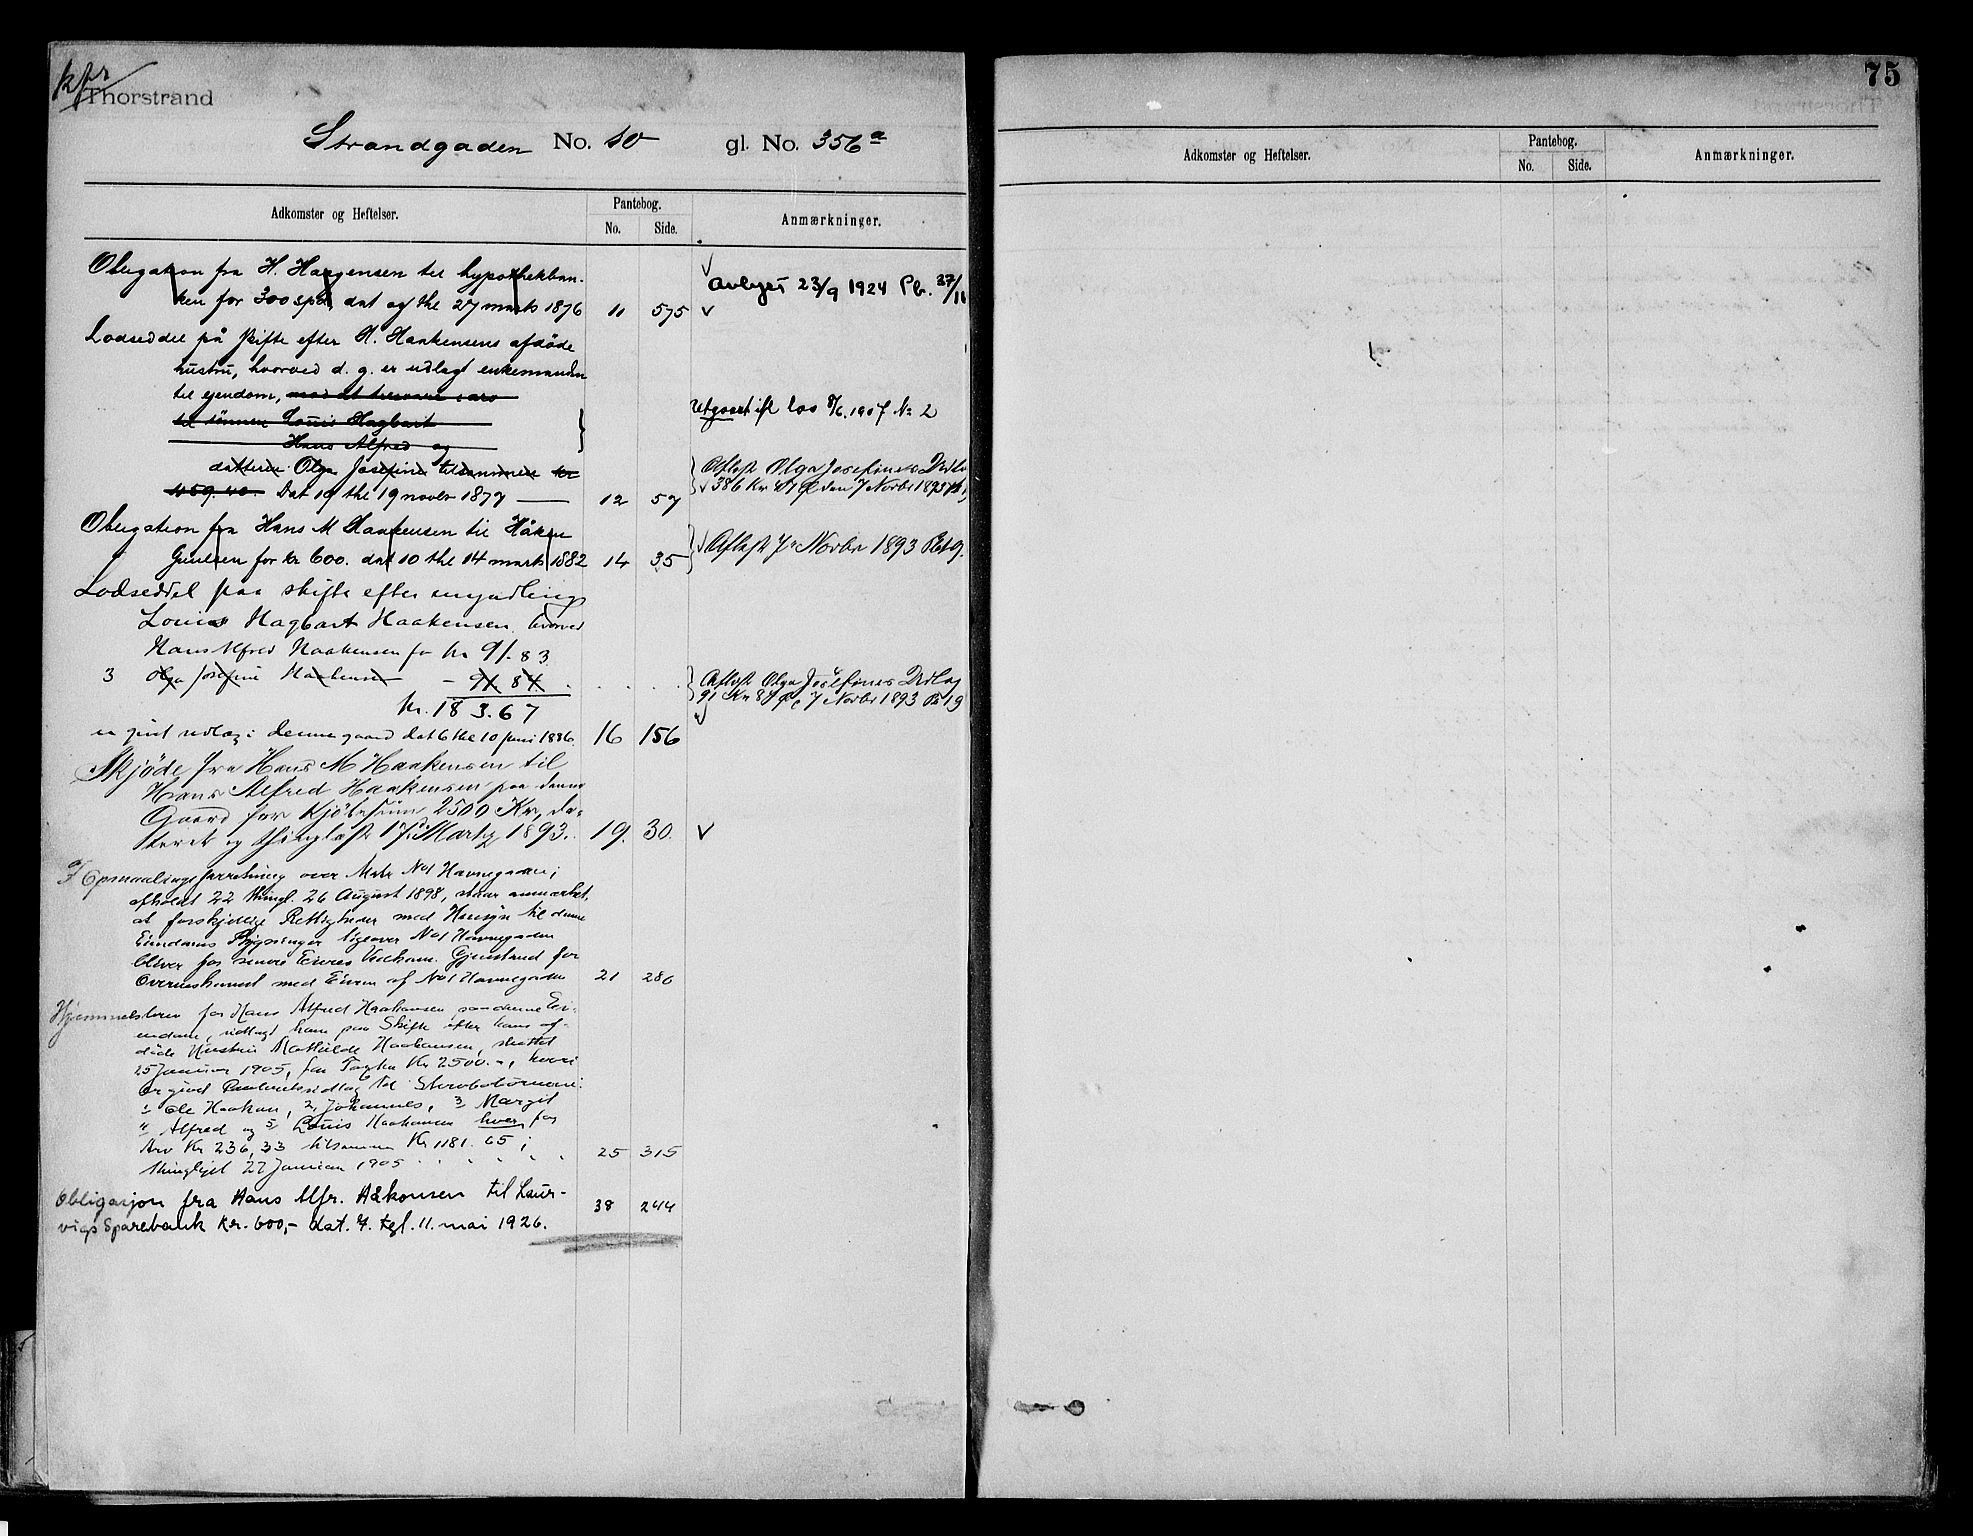 kfr
Thorstrand
Strandgaden No. 10 gl. No. 356a
Adkomster og Heftelser. Pantebog. No. Side. Anmærkninger.
Obligation fra H. Haagensen til hypothekban-
ken for 300 spd. dat og thl 27 marts 1876 11 575
avlyst 23/9 1924 Pb. 37/11
Lodseddel på skifte efter H. Haakensens afdöde
hustru, hvorved d. g. er udlagt enkemanden
til ejendom, mod at besvare arv
til sönnen Louis Hagbart
Hans Alfred og
Utgaaet ifl lov 8/6.1907 No 2
datteren Olga Josefine tilsammen kr
459.40. Dat 19 thl 19 novbr 1877 12 57
Aflæst Olga Josefines Udlæg
386 Kr 87 Ø den 7 Novbr 1893
Obligation fra Hans M Haakensen til Håken
Gunelsen for kr 600. dat 10 thl 14 marts 1882 14 35
Aflæst 7 Novbr 1893
Lodseddel paa skifte efter myndling
Louis Hagbart Haakensen, hvorved
Hans Alfred Haakensen for kr 91.83
3 Olga Josefine Haakensen - 91 84
kr. 183.67
Aflæst Olga Josefines Udlæg
91 Kr 84 Ø 7 Novbr 1893 Pb 19
er givet udlæg i denne gaard dat 6 thl 10 juni 1886. 16 156
Skjöde fra Hans M Haakensen til
Hans Alfred Haakensen paa denne
Gaard for Kjöbesum 2500 Kr, da-
teret og thinglæst 17 Marts 1893. 19. 30.
I Opmaalingsforretning over Matr No 1 Havnegaden;
afholdt 22 thingl. 26 August 1898, staar anmærket,
at forskjellige Rettigheder med Hensyn til denne
Eiendoms Bygninger ligeover No 1 Havnegaden
bliver for senere Eieres Vedkom. Gjenstand for
Overenskomst med Eieren af No 1 Havnegaden 21 286
Hjemmelsbrev for Hans Alfred Haakensen paa denne Ei-
endom, udlagt ham paa Skifte efter hans af-
döde Hustru Mathilde Haakensen, sluttet
25 Januar 1905, for Taxten Kr 2500.-, hvori
er givet Panteretsudlæg til Stervbobörnene:
1, Ole Haakon, 2, Johannes, 3, Margit
4, Alfred og 5, Louis Haakensen hver for
Arv Kr 236,33 tilsammen Kr 1181.65;
thinglyst 27 Januar 1905 25 315
Obligasjon fra Hans Alfr. Håkonsen til Laur-
vigs Sparebank kr. 600,- dat. 7. tgl. 11. mai 1926. 38 244
75
Adkomster og Heftelser. Pantebog. No. Side. Anmærkninger.